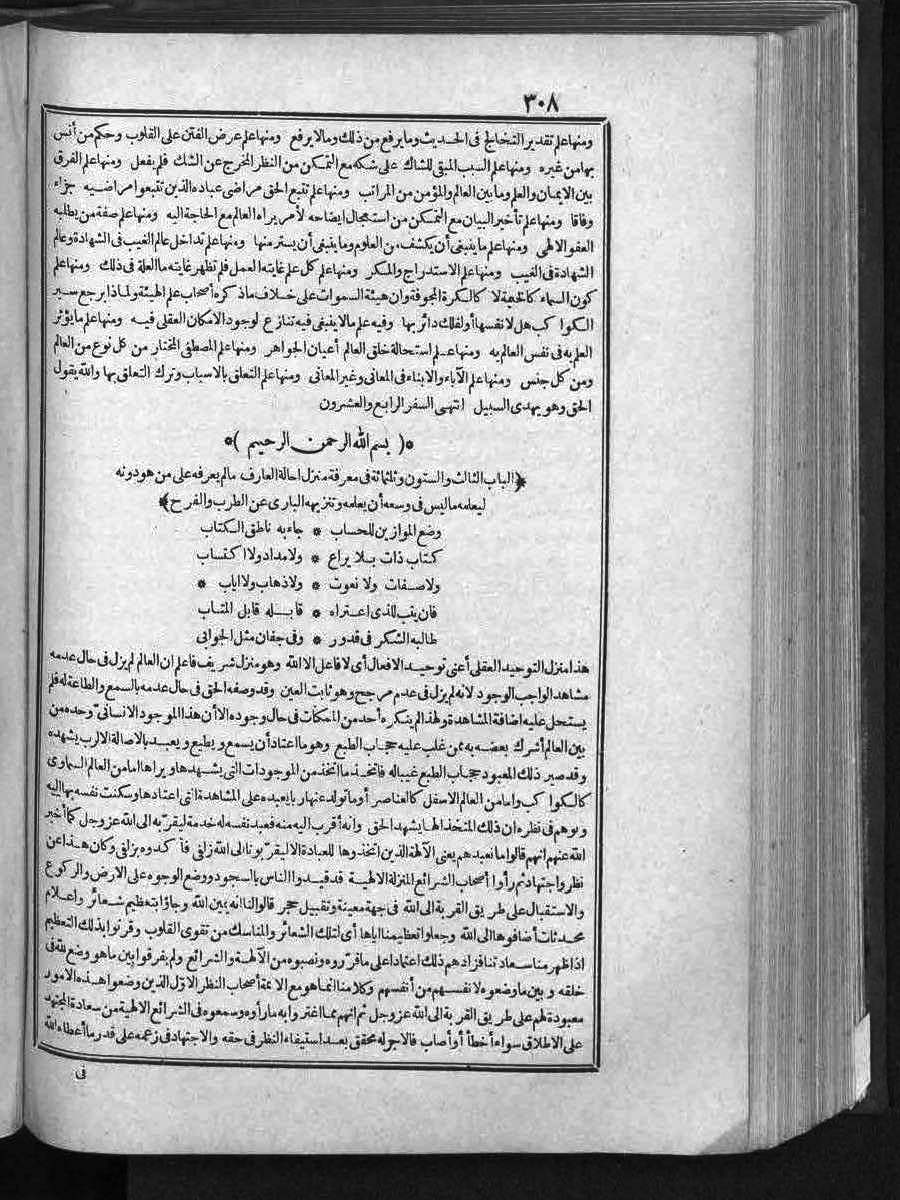 ٣٠٨
ومنها علم تقدير التخالج فى الحديث وما يرفع من ذلك وما لا يرفع ومنها علم عرض الفتن على القلوب وحكم من أنس
بها من غيره ومنها علم السبب المبقى للشاك على شكه مع التمكن من النظر المخرج عن الشك فلم يفعل ومنها علم الفرق
بين الايمان والعلم وما بين العالم والمؤمن من المراتب ومنها علم تتبع الحق مراضى عباده الذين تتبعوا مراضيه جزاء
وفاقا ومنها علم تأخير البيان مع التمكن من استعجال ايضاحه لأمر يراه العالم مع الحاجة اليه ومنها علم صفة من يطلبه
العفو الالهى ومنها علم ما ينبغى أن يكشف من العلوم وما ينبغى أن يستر منها ومنها علم تداخل عالم الغيب فى الشهادة وعالم
الشهادة فى الغيب ومنها علم الاستدراج والمكر ومنها علم كل علم غايته العمل فلم تظهر غايته ما العلة فى ذلك ومنها علم
كون السماء كالخيمة لا كالكرة المجوفة وان هيئة السموات على خلاف ما ذكره أصحاب علم الهيئة ولماذا يرجع سير
الكواكب هل لانفسها أو لفلك دائر بها وفيه علم ما لا ينبغى فيه تنازع لوجود الامكان العقلى فيه ومنها علم ما يؤثر
العلم به فى نفس العالم به ومنها علم استحالة خلق العالم أعيان الجواهر ومنها علم المصطفى المختار من كل نوع من العالم
ومن كل جنس ومنها علم الآباء والابناء فى المعانى وغير المعانى ومنها علم التعلق بالاسباب وترك التعلق بها والله يقول
الحق وهو يهدى السبيل انتهى السفر الرابع والعشرون
*( بسم الله الرحمن الرحيم )*
﴿الباب الثالث والستون وثلثمائة فى معرفة منزل احالة العارف مالم يعرفه على من هو دونه
ليعلمه ما ليس فى وسعه أن يعلمه وتنزيه البارى عن الطرب والفرح﴾
وضع الموازين للحساب * جاء به ناطق الكتاب
كتاب ذات بلا يراع * ولا مداد ولا اكتساب
ولا صفات ولا نعوت * ولا ذهاب ولا اياب *
فان يتب للذى اعتراه * قابله قابل المتاب
طالبه الشكر فى قدور * وفى جفان مثل الجوابى
هذا منزل التوحيد العقلى أعنى توحيد الافعال أى لا فاعل الا الله وهو منزل شريف فاعلم ان العالم لم يزل فى حال عدمه
مشاهد الواجب الوجود لانه لم يزل فى عدم مرجح وهو ثابت العين وقد وصفه الحق فى حال عدمه بالسمع والطاعة له فلم
يستحل عليه اضافة المشاهدة ولهذا لم ينكره أحد من الممكنات فى حال وجوده الا أن هذا الموجود الانسانى وحده من
بين العالم أشرك بعضه به ممن غلب عليه حجاب الطبع وهو ما اعتاد أن يسمع ويطيع ويعبد بالاصالة الا لرب يشهده
وقد صير ذلك المعبود حجاب الطبع غيبا له فاتخذ ما اتخذ من الموجودات التى يشهدها ويراها اما من العالم السماوى
كالكواكب واما من العالم الاسفل كالعناصر أو ما تولد عنها ربا يعبده على المشاهدة التى اعتادها وسكنت نفسه بها اليه
وتوهم فى نظره ان ذلك المتخذ الها يشهد الحق وانه أقرب اليه منه فعبد نفسه له خدمة ليقربه الى الله عز وجل كما أخبر
الله عنهم انهم قالوا ما نعبدهم يعنى الآلهة الذين اتخذوها للعبادة الا ليقربونا الى الله زلفى فأكدوه بزلفى وكان هذا عن
نظر واجتهاد ثم رأوا أصحاب الشرائع المنزلة الالهية قد قيدوا الناس بالسجود ووضع الوجوه على الارض والركوع
والاستقبال على طريق القربة الى الله فى جهة معينة وتقبيل حجر قالوا لنا انه يمين الله وجاؤا بتعظيم شعائر واعلام
محدثات أضافوها الى الله وجعلوا تعظيمنا اياها أى لتلك الشعائر والمناسك من تقوى القلوب وقرنوا بذلك التعظيم
اذا ظهر منا سعادتنا فزادهم ذلك اعتمادا على ما قرروه ونصبوه من الآلهة والشرائع ولم يفرقوا بين ما هو وضع لله فى
خلقه وبين ما وضعوه لانفسهم من أنفسهم وكلامنا انما هو مع الائمة أصحاب النظر الاول الذين وضعوا هذه الامور
معبودة لهم على طريق القربة الى الله عز وجل ثم انهم مما اغتروا به ما رأوه وسمعوه فى الشرائع الالهية من سعادة المجتهد
على الاطلاق سواء أخطأ أو أصاب فالاجر له محقق بعد استيفاء النظر فى حقه والاجتهاد فى زعمه على قدر ما أعطاه الله
فى